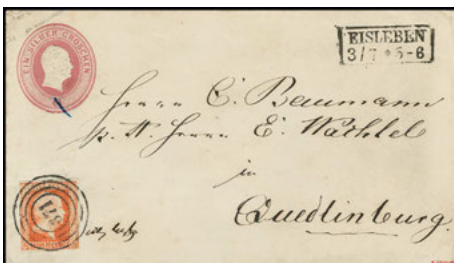 EIN SILBER GROSCHEN
EISLEBEN
3/7 * 5-6
Herrn C. Baumann
p. A. Herrn E. Wächtel
in
Quedlinburg.
371